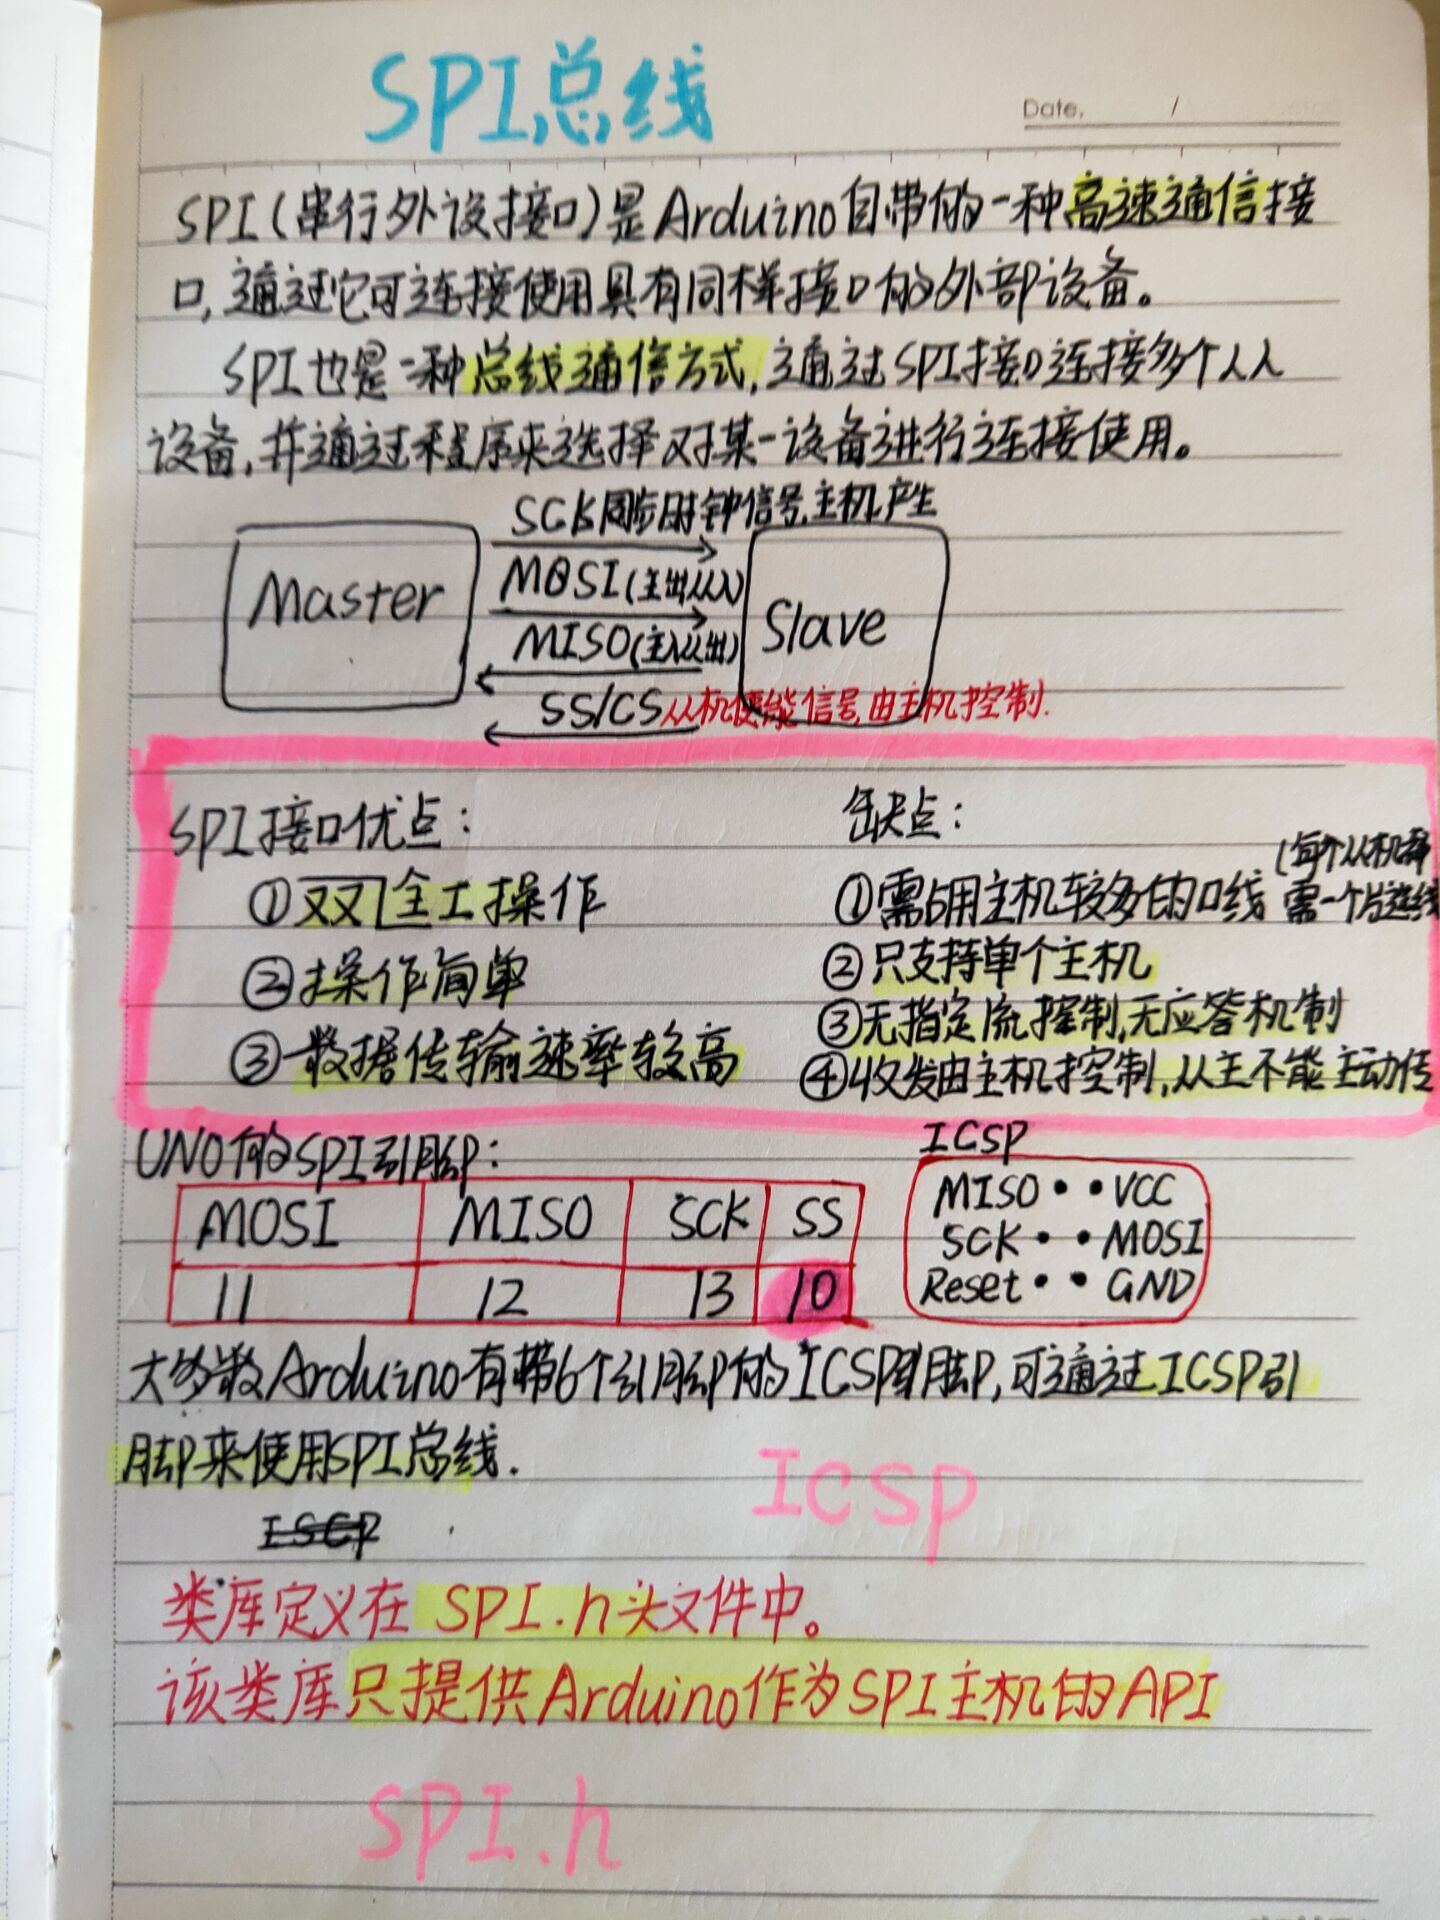 SPI总线
Date. /
SPI(串行外设接口)是Arduino自带的一种高速通信接
口,通过它可连接使用具有同样接口的外部设备。
SPI也是一种总线通信方式,通过SPI接口连接多个从
设备,并通过程序来选择对某一设备进行连接使用。
SCK同步时钟信号,主机产生
Master
MOSI(主出从入)
Slave
MISO(主入从出)
SS/CS从机使能信号,由主机控制.
SPI接口优点:
①双双全工操作
②操作简单
③数据传输速率较高
缺点:
①需占用主机较多的口线(每个从机都
需一个片选线
②只支持单个主机
③无指定流控制,无应答机制
④收发由主机控制,从主不能主动传
UNO的SPI引脚:
MOSI MISO SCK SS
11 12 13 10
ICSP
MISO • • VCC
SCK • • MOSI
Reset • • GND
大多数Arduino有带6个引脚的ICSP引脚,可通过ICSP引
脚来使用SPI总线.
ICSP
ISCP
类库定义在SPI.h头文件中。
该类库只提供Arduino作为SPI主机的API
SPI.h